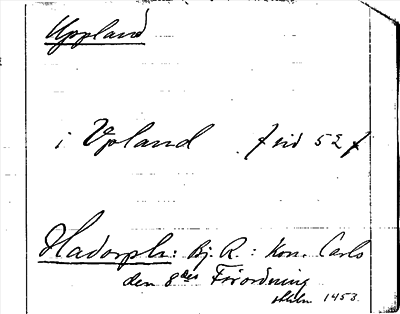 Uppland
i Vpland f sid 52 f
Hadorph: Bj. R.: Kon. Carls
den 8des Förordning
1453.